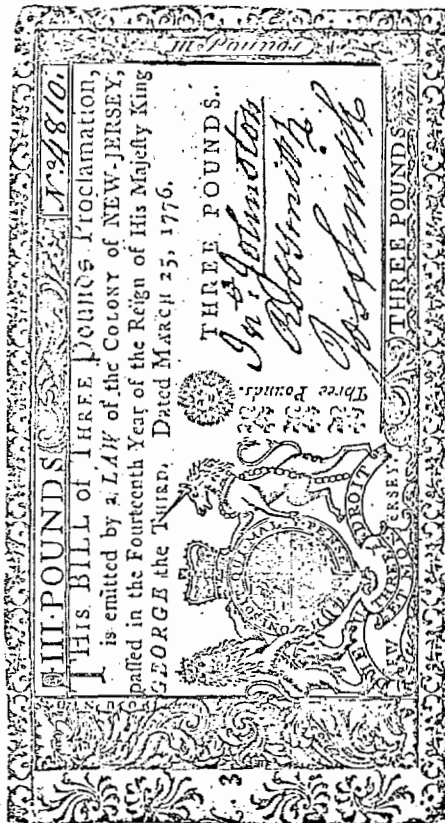 III POUNDS
No 4810
THIS BILL of THREE Pounds Proclamation,
is emitted by a LAW of the COLONY of NEW-JERSEY,
passed in the Fourteenth Year of the Reign of His Majesty King
GEORGE the THIRD. Dated MARCH 25, 1776.
THREE POUNDS.
Jn Johnston
Smith
Jos Smith
Three Pounds.
HONI SOIT MAL Y PENSE
DIEU ET MON DROIT
JERSEY
THREE POUNDS
3